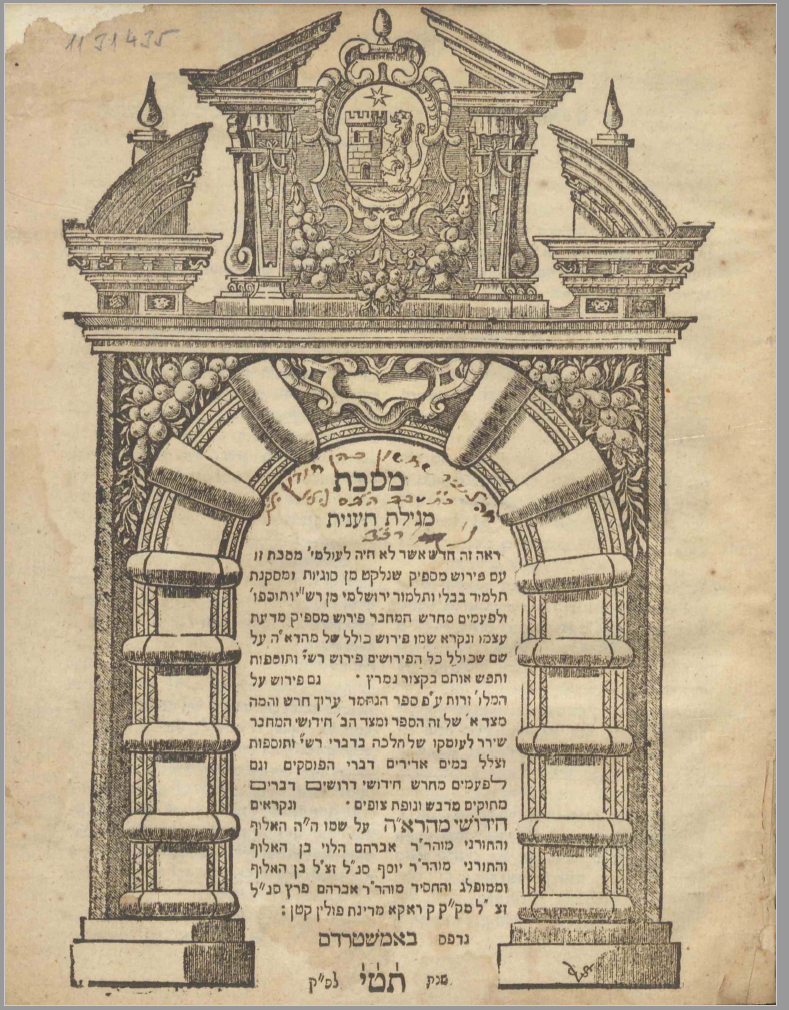 1131435
מסכת
מגילת תענית
ראה זה חדש אשר לא היה לעולמי׳ מסכת זו
עם פירוש מספיק שנלקט מן סוגיות ומסקנת
תלמוד בבלי ותלמוד ירושלמי מן רש״י ותוספו׳
ולפעמים מחדש המחבר פירוש מספיק מדעת
עצמו ונקרא שמו פירוש כולל של מהרא״ה על
שם שכולל כל הפירושים פירוש רש״י ותוספות
ותפש אותם בקצור נמרץ · גם פירוש על
המלו׳ זרות ע״פ ספר הנחמד ערוך חדש והמה
מצד א׳ של זה הספר ומצד הב׳ חידושי המחבר
שירד לעומקו של הלכה בדברי רש״י ותוספות
וצלל במים אדירים דברי הפוסקים וגם
לפעמים מחדש חידושי דרושים דברים
מתוקים מדבש ונופת צופים · ונקראים
חידושי מהרא״ה על שמו ה״ה האלוף
והתורני מוהר״ר אברהם הלוי בן האלוף
והתורני מוהר״ר יוסף סג״ל זצ״ל בן האלוף
וממופלג והחסיד מוהר״ר אברהם פרץ סג״ל
זצ״ל מק״ק ק ראקא מדינת פולין קטן :
נדפס באמשטרדם
שנת תטי לפ״ק